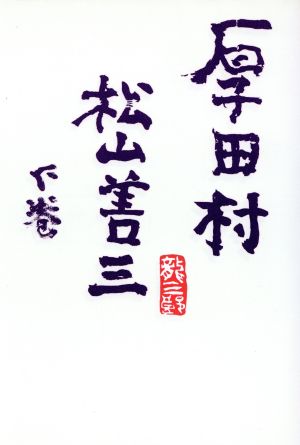 厚田村
松山善三
下巻